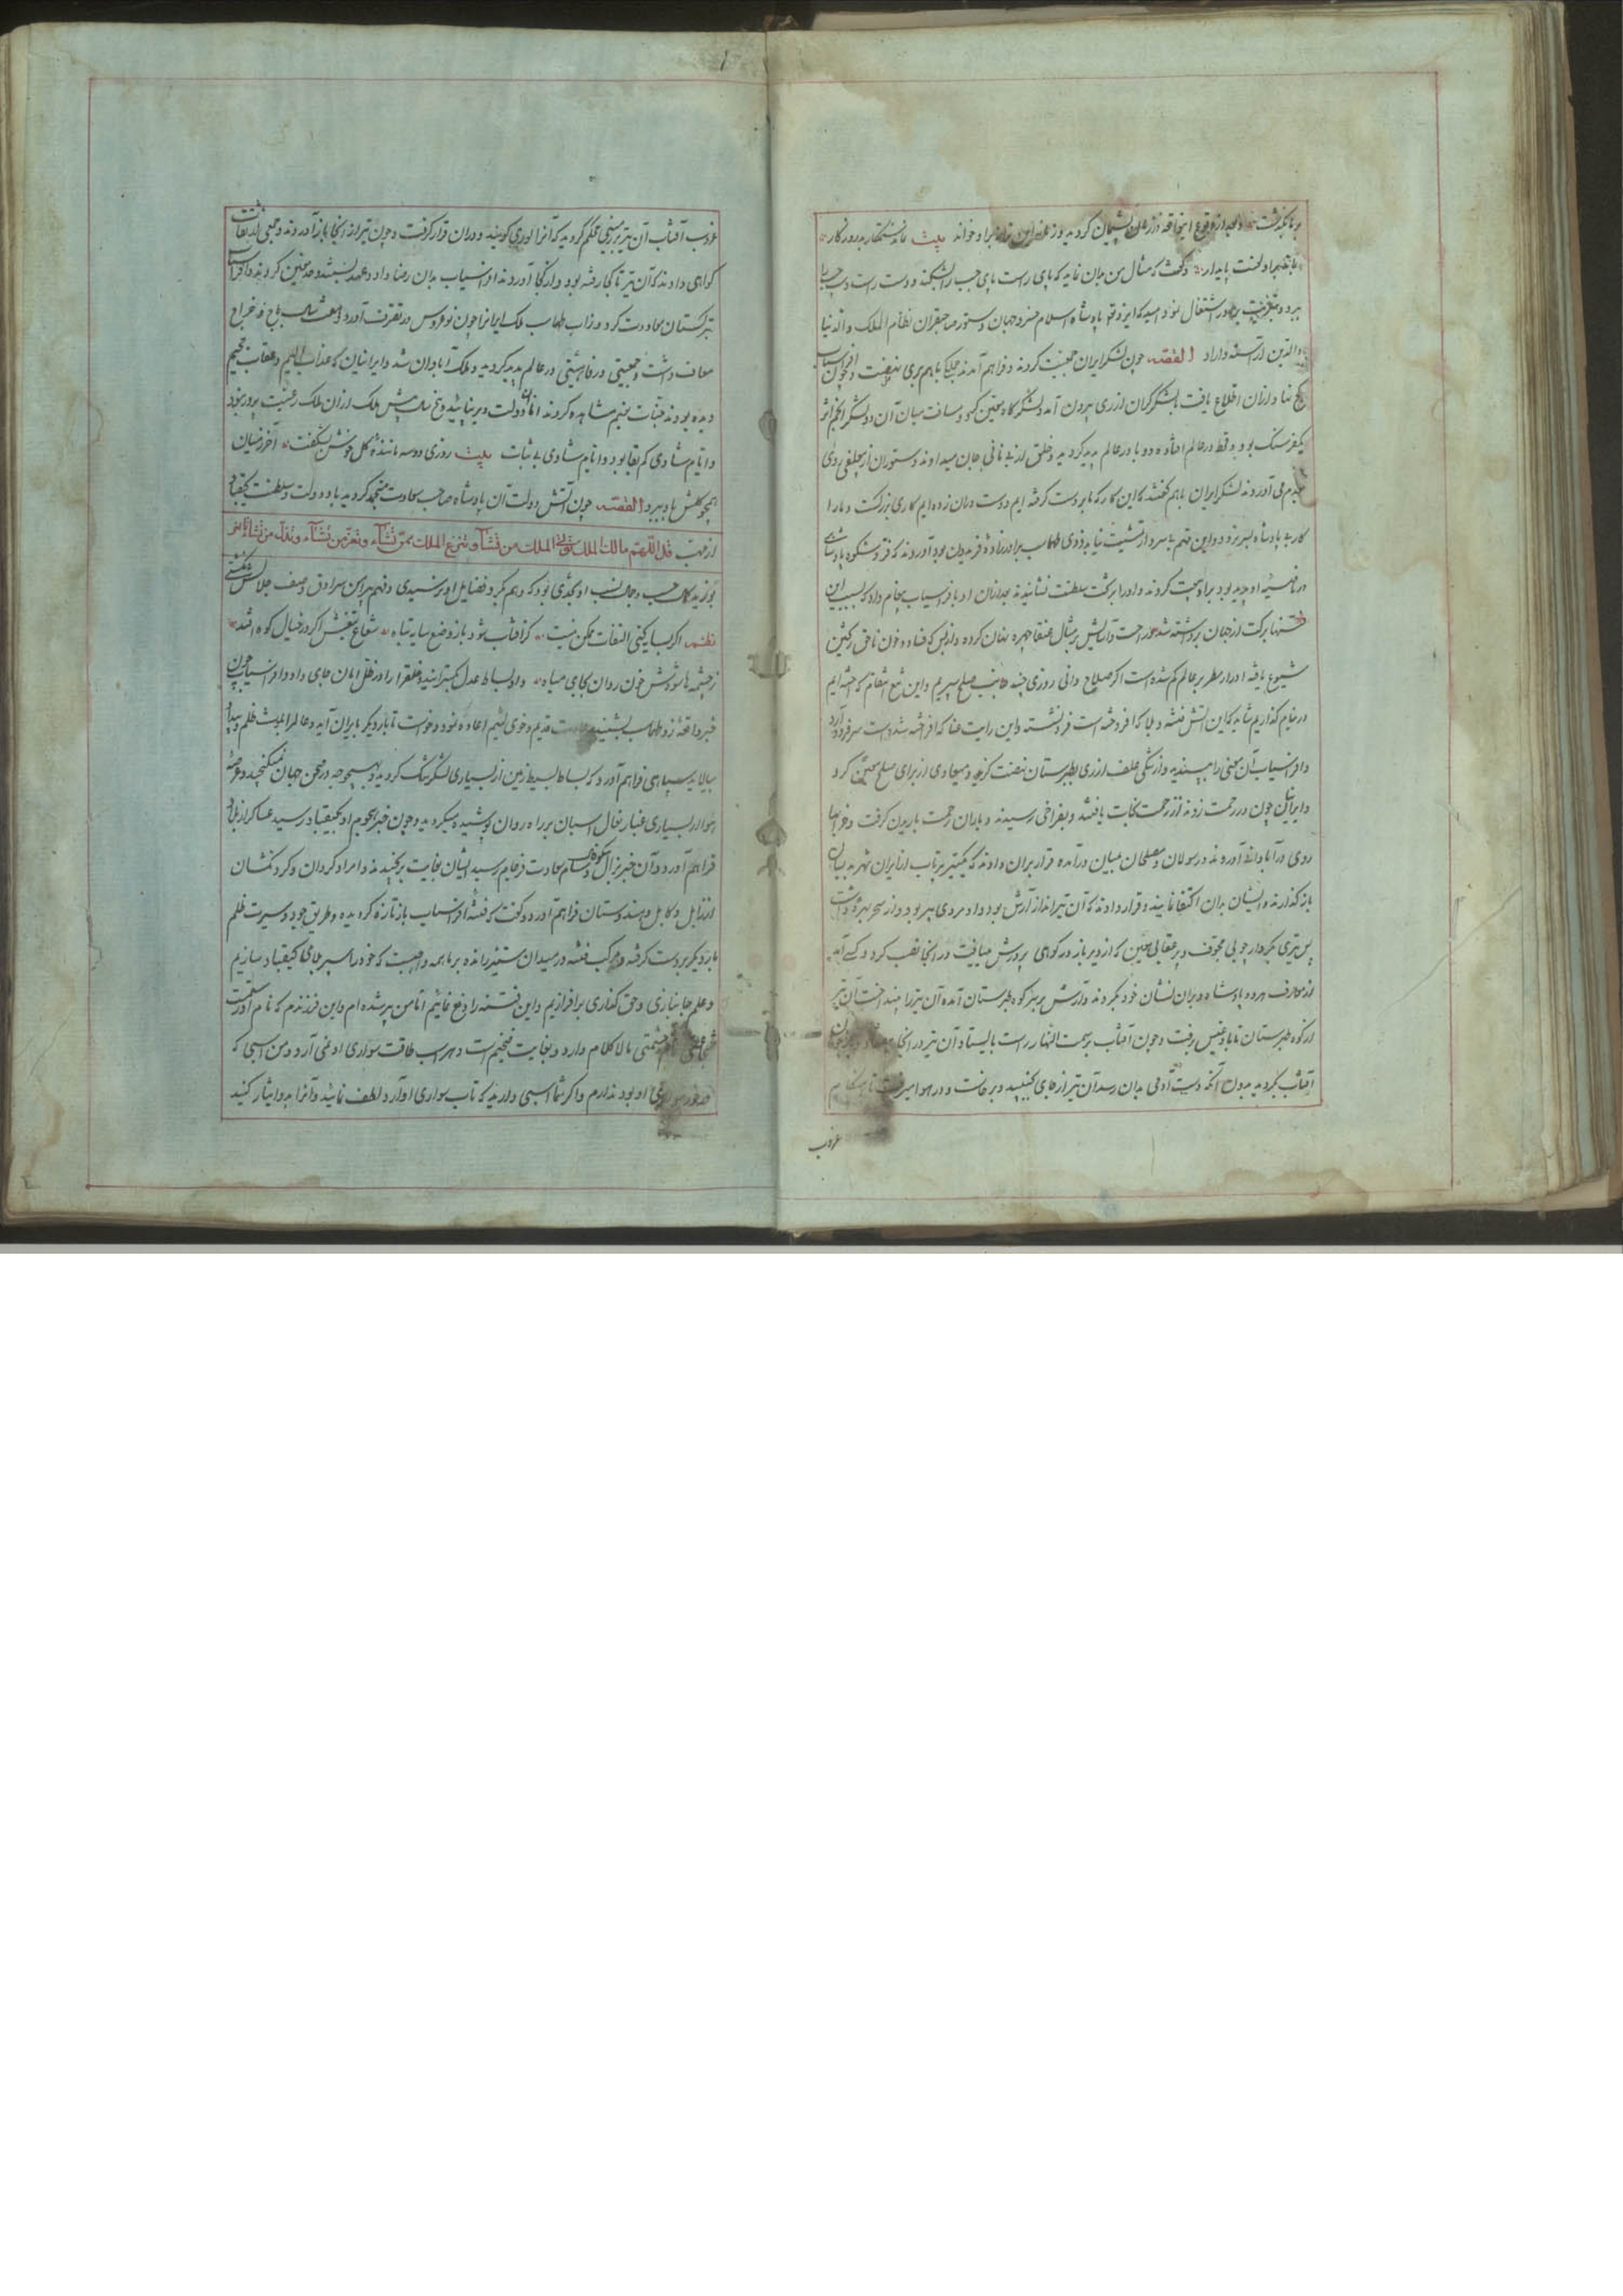 بر ما بگذشت و بعد از وقوع این واقعه از زعمان پشیمان گردید و زغن این ترانه برا و خواند بیت ماند ستمکار بد روزگار
بماند برو لعنت پایدار و گفت که مثال من بدان نماید که پای راست پای چپ را بشکند و دست راست دست چپ را
ببرد و بتعزیت برادر اشتغال نمود امید که ایزد تعالی پادشاه اسلام خسرو جهان دستور صاحبقران نظام الملک والدنیا
والدین آراسته داراد القصه چون لشکر ایران جمعیت کردند و فراهم آمدند جملگی باهم بری نهضت و چون افراسیاب
کج نهاد از آن اطلاع یافت با لشکر گران از ری بیرون آمد و لشکرگاه معین کرد و مسافت میان آن دو لشکر انجم اثر
یکفرسنگ بود و قحط در عالم افتاده و وبا در عالم پدید گردید و خلق از بی نانی جان میدادند و ستوران از بی علفی روی
بعدم می آوردند لشکر ایران باهم گفتند که این کار که ما بر دست گرفته ایم و دست در آن زده ایم کاری بزرگست و ما را
کار بی پادشاه بسر نرود و این مهم بی سردار تمشیت نیابد زوی طهماسب برادرزاده فریدون بود آوردند که فر و شکوه پادشاهی
در ناصیه او پدید بود برا و بیعت کردند و او را بر تخت سلطنت نشانیدند بعد از آن او با افراسیاب پیغام داد که بسبب این
فتنها برکت از جهان برداشته شد و راحت و آسایش بر مثال عنقا چهره نهان کرده و از بس که فساد و خون ناحق ریختن
شیوع یافته ادرار مطر بر عالم کم شده است اگر صلاح دانی روزی چند جانب صلح سپریم و این تیغ انتقام که آخته ایم
در نیام گذاریم شاید که این آتش فتنه و بلا که افروخته است فرو نشیند و این رایت عنا که افراخته شده است سر فرود آرد
و افراسیاب آن معنی را بپسندید و از تنگی علف از ری بطبرستان نهضت کرد و میعادی از برای صلح معین کرد
و ایرانیان چون در رحمت زدند از زحمت نجات یافتند و بفراخی رسیدند و باران رحمت باریدن گرفت و خرابیها
روی در آبادانی آوردند و رسولان و مصلحان بمیان در آمده قرار بران دادند که یک تیر پرتاب از ایران شهر بدیشان
باز گذارند و ایشان بدان اکتفا نمایند و قرار دادند که آن تیرانداز آرش بود و او مردی پیر بود و از سحر بهره داشت
پس تیری بکردار چوبی مجوف و پر عقابی معین که از دیر باز در کوهی پرورش مییافت در آنجا نصب کرد و کسی آمد
از معارف هر دو پادشاه و بران نشان خود بکردند و آرش بر سر کوه طبرستان آمده آن تیر را بینداخت آن تیر
از کوه طبرستان تا بادغیس برفت و چون آفتاب بسمت النهار راست بایستاد آن تیر در آنجا بیفتاد و چون
آفتاب بگردید بدون آنکه دست آدمی بدان رسد آن تیر از جای بجنبید و برخاست و در هوا میرفت تا هنگام
غروب
غروب آفتاب آن تیر بزمینی محکم گردید که آنرا لوری گویند و در آن قرار گرفت و چون تیر از آنجا باز آوردند و جمعی از ثقات
گواهی دادند که آن تیر تا کجا رفته بود و از کجا آوردند افراسیاب بدان رضا داد و عهد ببستند و حد معین کردند و افراسیاب
بترکستان معاودت کرد و زاب طهماسب ملک ایرانرا چون نو عروس در تصرف آورد و هفت سال باج و خراج
معاف داشت و جمعیتی و رفاهیتی در عالم پدید گردید و ملک آبادان شد و ایرانیان که عذاب الیم و عقاب جحیم
دیده بودند جنات نعیم مشاهده کردند اما آن دولت دیر نپائید و پنج سال بیش ملک از آن ملک رعیت پرور نبود
و ایام شادی کم بقا بود و ایام شادی بی ثبات بیت روزی دو سه مانندهٔ گل خوش بشکفت آخر ز میان
همچو گلش باد ببرد القصه چون آتش دولت آن پادشاه صاحب سعادت منخمد گردید باد دولت و سلطنت کیقباد
از مهب قل اللهم مالک الملک تؤتی الملک من تشآء و تنزع الملک ممن تشآء و تعز من تشآء و تذل من تشآء
بوزید کمال حسب و جمال نسب او بحدی بود که وهم گرد فضایل او نرسیدی و فهم پیرامن سرادق وصف جلالش نگشتی
نظم اگر بسایه کنی التفات ممکن نیست کز آفتاب شود باز وضع سایه تباه شعاع تیغش اگر در خیال کوه افتد
ز چشمه ها شودش خون روان بجای میاه و او بساط عدل بگسترانید و خلق را در ظل امان جای داد و افراسیاب چون
خبر واقعه زو طهماسب بشنید عادت قدیم و خوی لئیم اعاده نمود و خواست تا بار دیگر بایران آید و عالم را بلوث ظلم و بیداد
بیالاید سپاهی فراهم آورد که بساط بسیط زمین از بسیاری لشکر تنگ گردید و بهیچوجه در صحن جهان نمیگنجید و عرصه
هوا از بسیاری غبار نعال اسبان بر راه روان پوشیده میگردید و چون خبر هجوم او بکیقباد رسید عساکر از زابل
فراهم آورد و آن خبر بزال و سام سعادت فرجام رسید ایشان بغایت برنجیدند و امرا و گردان و گردنکشان
از زابل و کابل و هندوستان فراهم آورد و گفت که فتنه افراسیاب باز تازه گردیده و طریق جور و سیرت ظلم
بار دیگر بر دست گرفته و مرکب فتنه در میدان ستیز رانده بر ما همه واجبست که خود را سپر بلای کیقباد سازیم
و علم جانبازی و حق گذاری برافرازیم و این فتنه را دفع نمائیم اما من پیر شده ام و این فرزندم که نام او رستمست
حشمتی مالا کلام دارد و بغایت ضخیم است و هر اسب طاقت سواری او نمی آرد و من اسبی که
او بود ندارم و اگر شما اسبی دارید که تاب سواری او آرد لطف نمائید و آنرا بدو ایثار کنید